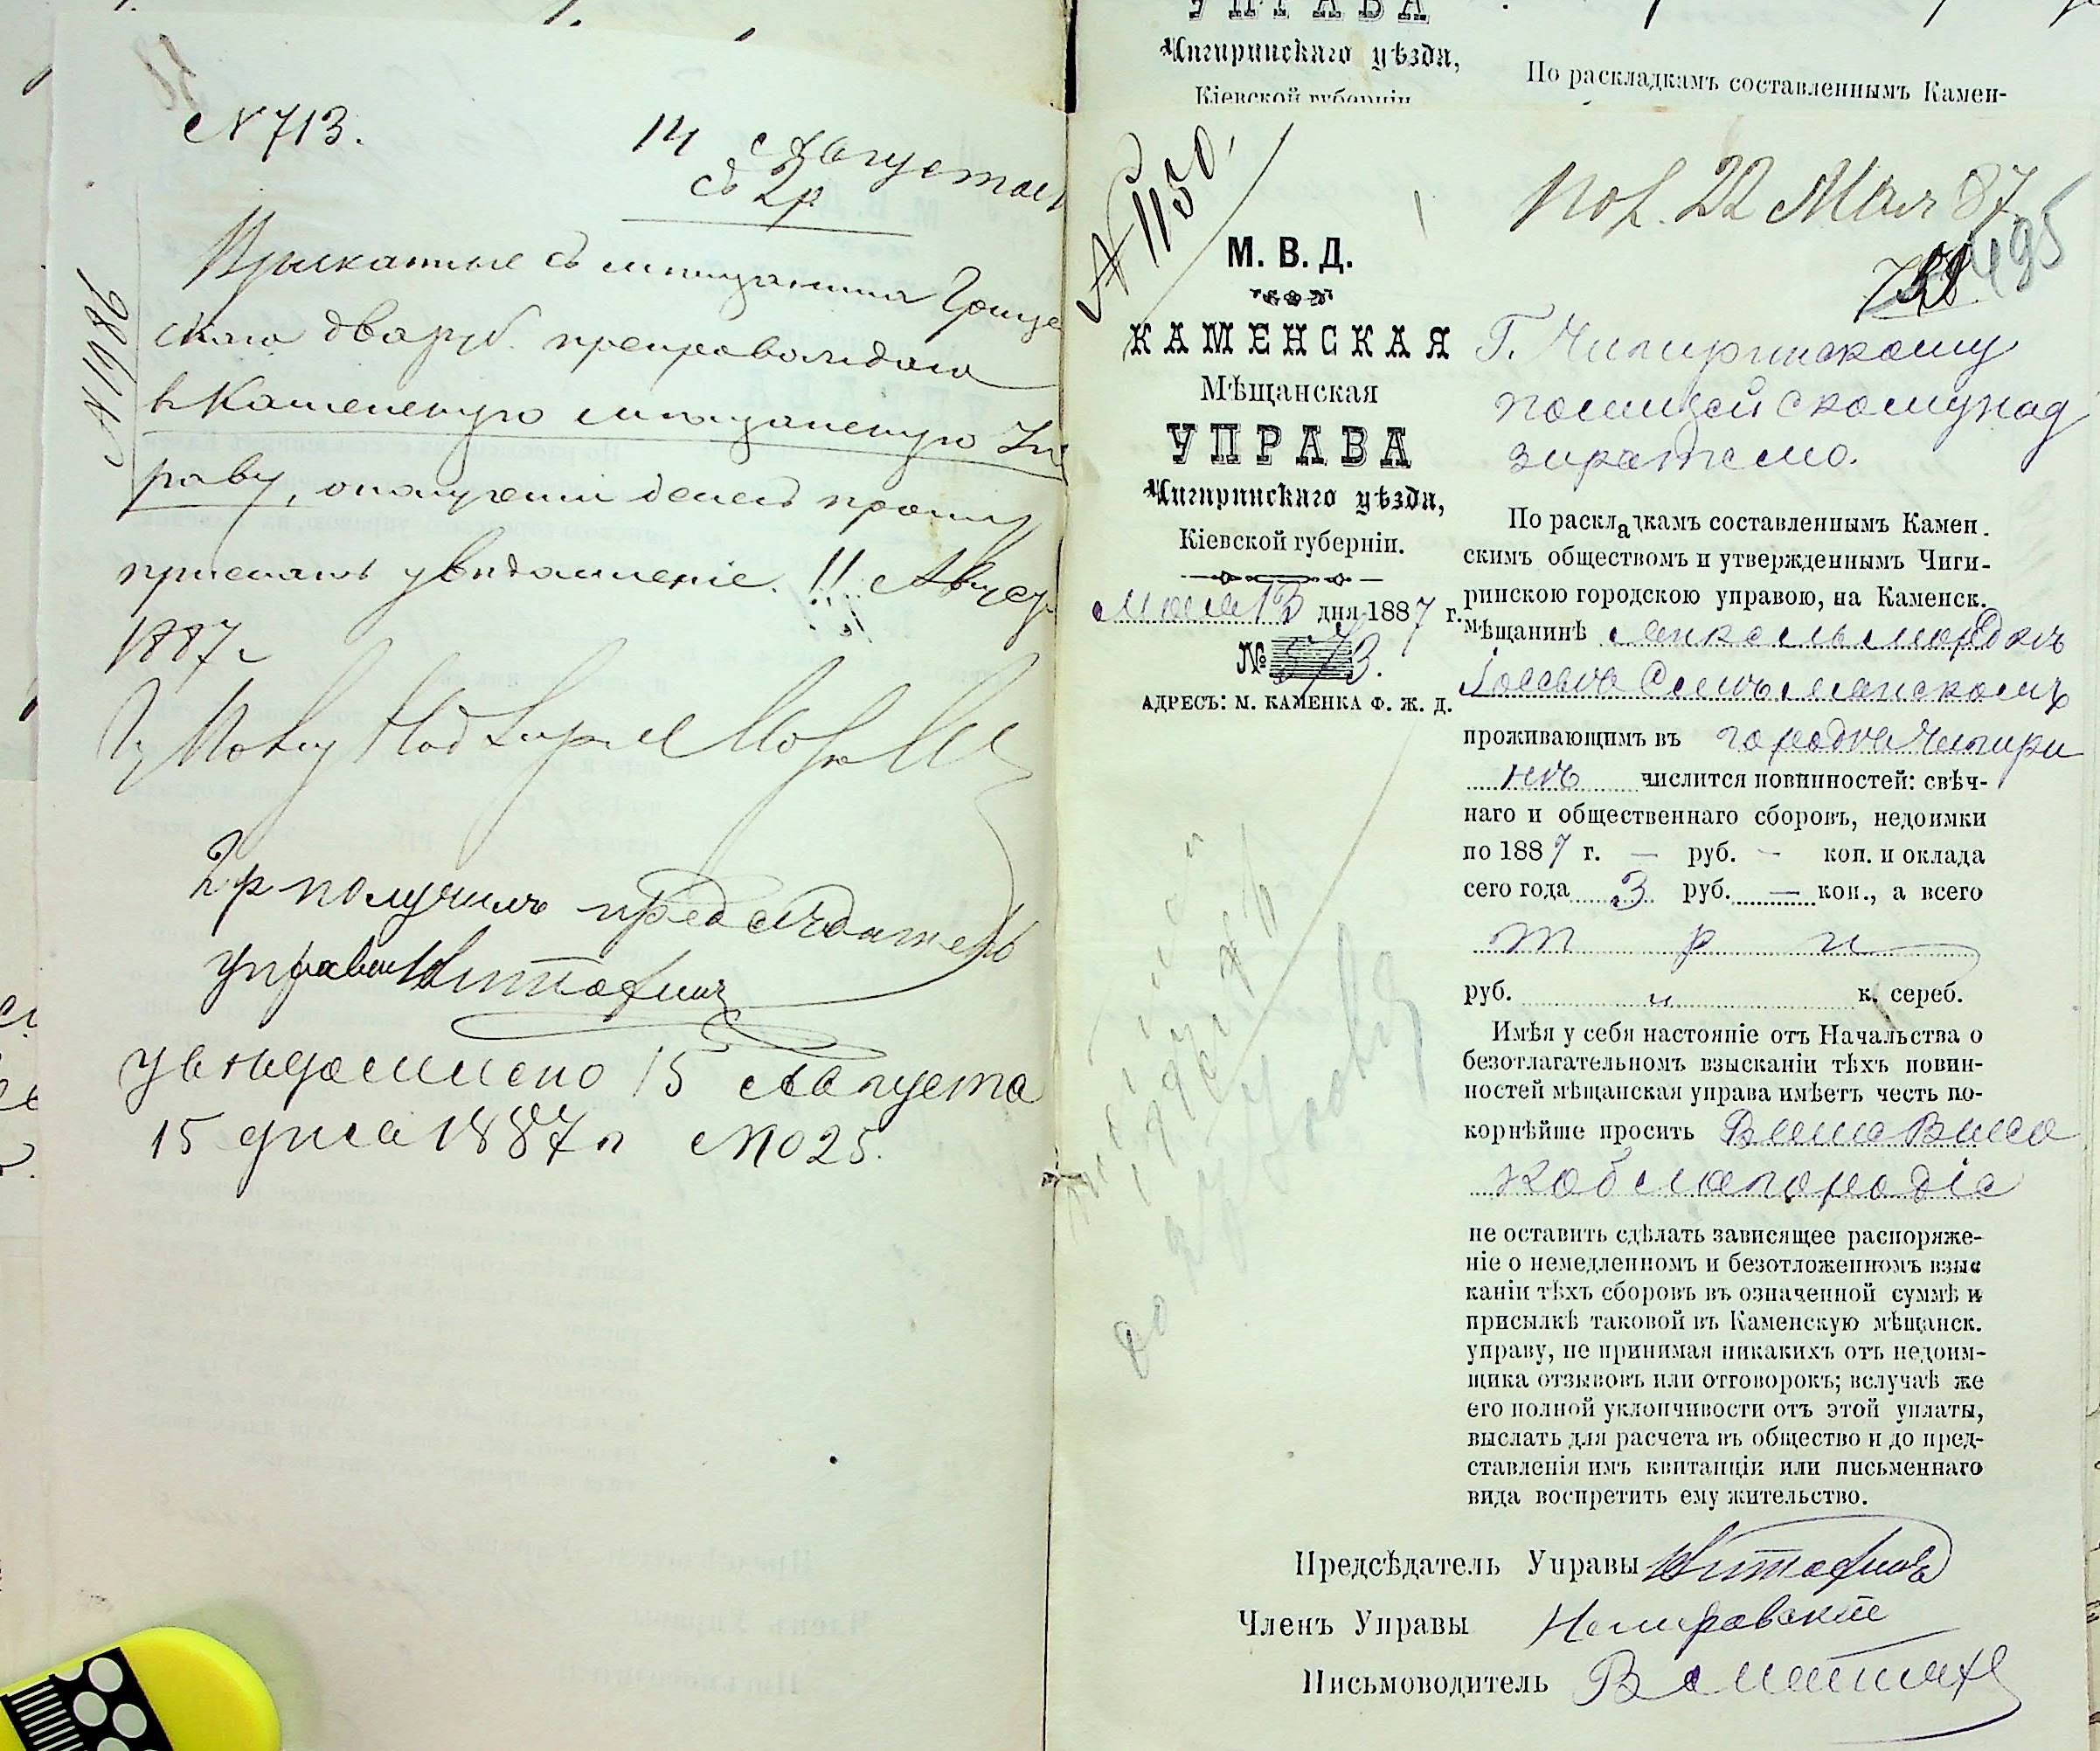 № 713.
14 Августа
съ 2 р
№ 1986
Взысканные съ мещанина
два руб. препровождаю
в Каменскую мещанскую Уп
раву, о получении денегъ прошу
прислать уведомление. 11 Август
1887 г
2 р получилъ председатель
управы
уведомлено 15 Августа
15 дня 1887 г № 1025.
УПРАВА
Чигиринскаго уѣзда,
Кіевской губерніи
По раскладкамъ составленнымъ Камен-
№ 1150
Пол. 22 Мая 87
495
М. В. Д.
КАМЕНСКАЯ
Мѣщанская
УПРАВА
Чигиринскаго уѣзда,
Кіевской губерніи.
мая 13 дня 1887 г.
№ 573.
АДРЕСЪ: М. КАМЕНКА Ф. Ж. Д.
Г. Чигиринскому
полицейскому над
зирателю.
По раскладкамъ составленнымъ Камен.
скимъ обществомъ и утвержденнымъ Чиги-
ринскою городскою управою, на Каменск.
мѣщанинѣ
проживающимъ въ городѣ Чигири
нѣ числится повинностей: свѣч-
наго и общественнаго сборовъ, недоимки
по 1887 г. — руб. — коп. и оклада
сего года 3 руб. — коп., а всего
три
руб. и к. сереб.
Имѣя у себя настояніе отъ Начальства о
безотлагательномъ взысканіи тѣхъ повин-
ностей мѣщанская управа имѣетъ честь по-
корнѣйше просить Ваше Высо
коблагородіе
не оставить сдѣлать зависящее распоряже-
ніе о немедленномъ и безотложенномъ взыс
каніи тѣхъ сборовъ въ означенной суммѣ и
присылкѣ таковой въ Каменскую мѣщанск.
управу, не принимая никакихъ отъ недоим-
щика отзывовъ или отговорокъ; вслучаѣ же
его полной уклончивости отъ этой уплаты,
выслать для расчета въ общество и до пред-
ставленія имъ квитанціи или письменнаго
вида воспретить ему жительство.
Предсѣдатель Управы
Членъ Управы Немировскій
Письмоводитель